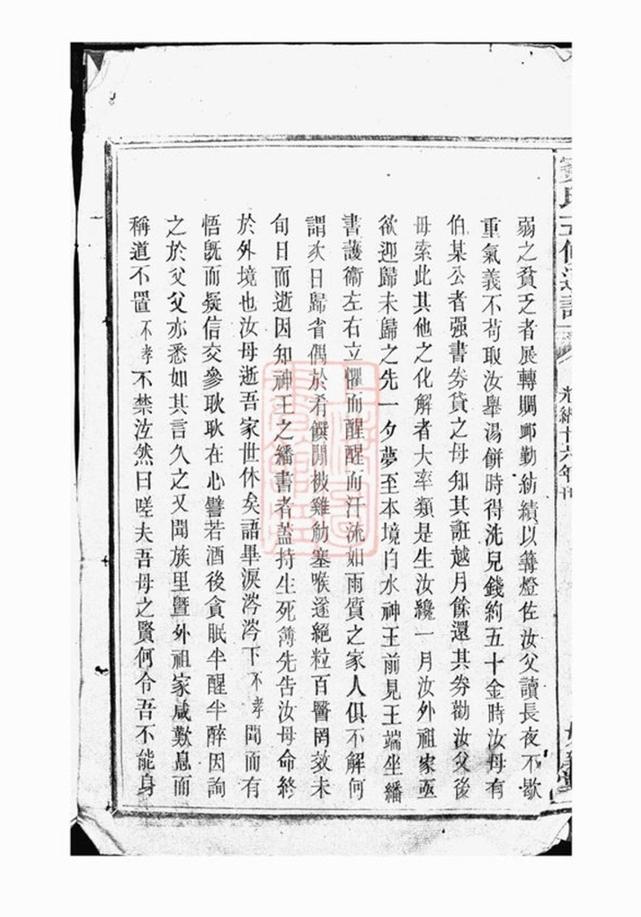 光緒十六年
弱之貧乏者展轉賙卹勤紡績以篝燈佐汝父讀長夜不歇
重氣義不苟取汝舉湯餅時得洗兒錢約五十金時汝母有
伯某公者强書劵貸之母知其誑越月餘還其劵勸汝父後
毋索此其他之化解者大率類是生汝纔一月汝外祖家亟
欲迎歸未歸之先一夕夢至本境白水神王前見王端坐繙
書護衞左右立懼而醒醒而汗流如雨質之家人俱不解何
謂次日歸省偶於肴饌間被雞肋塞喉遂絕粒百醫罔效未
旬日而逝因知神王之繙書者蓋持生死簿先告汝母命終
於外境也汝母逝吾家世休矣語畢淚涔涔下不孝聞而有
悟旣而疑信交參耿耿在心譬若酒後貪眠半醒半醉因詢
之於父父亦悉如其言久之又聞族里曁外祖家咸歎息而
稱道不置不孝不禁泫然曰嗟夫吾母之賢何令吾不能身